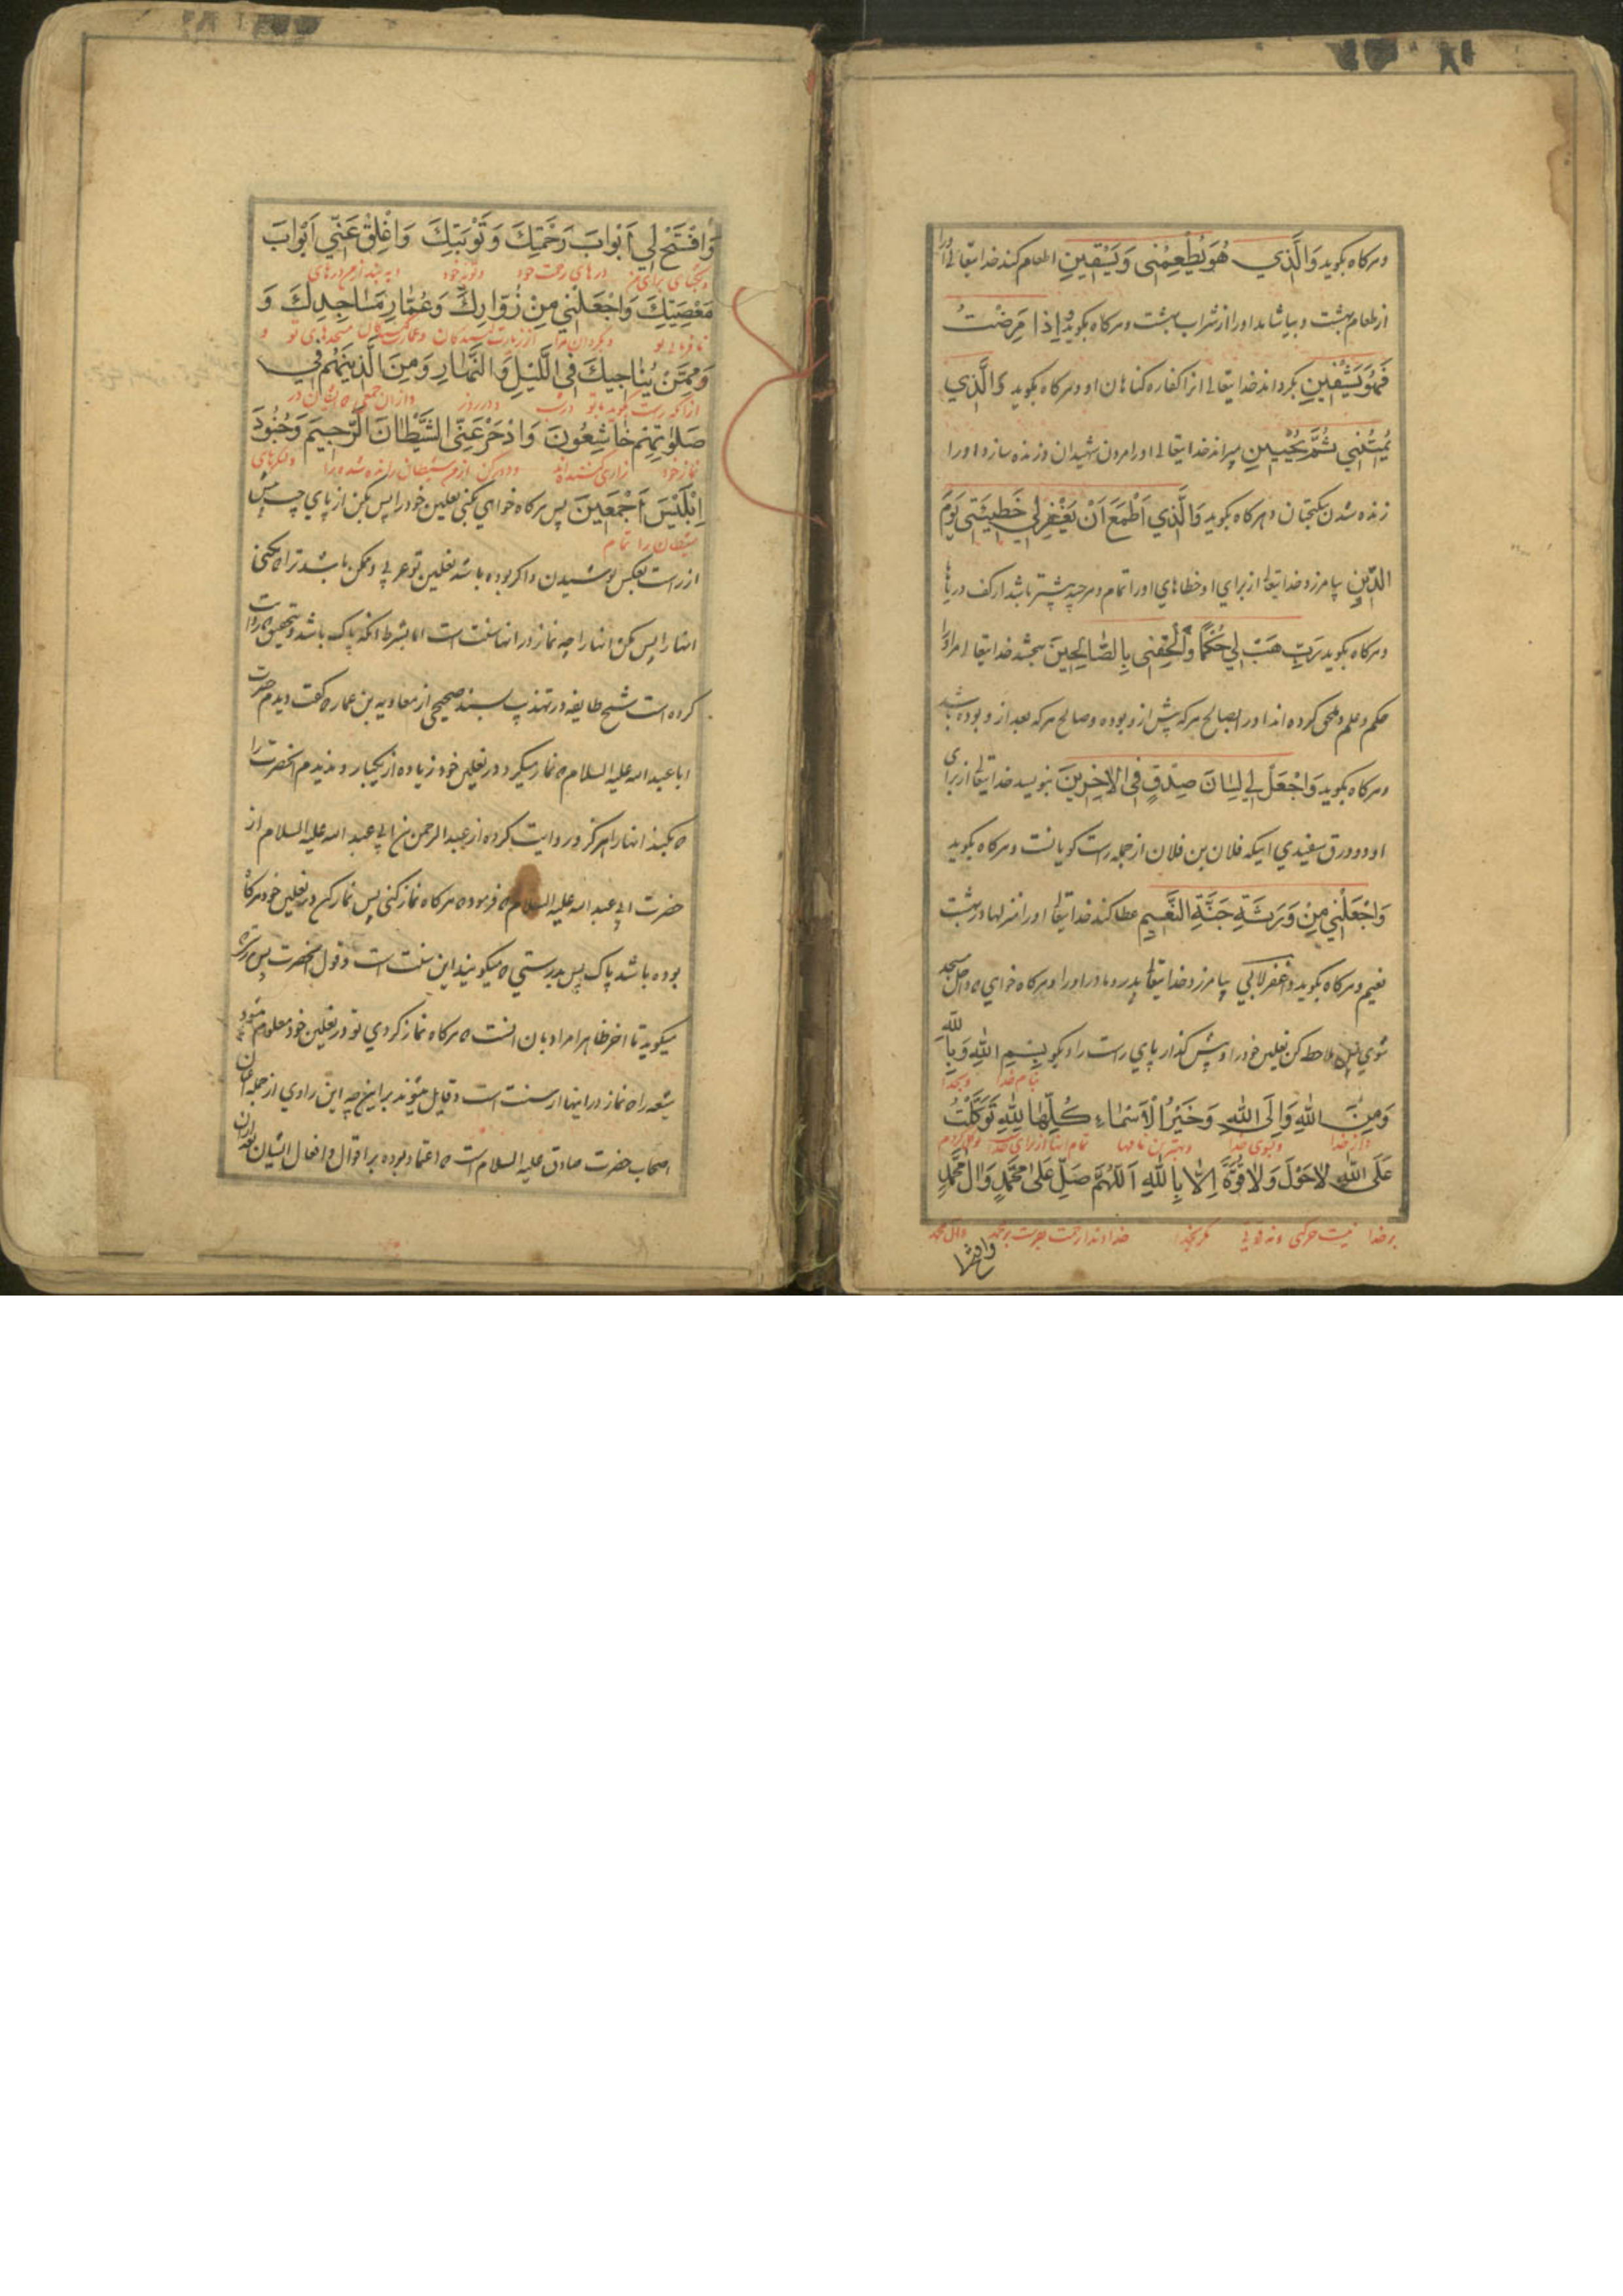 و هرکاه بکوید وَالَّذي هُوَ يُطْعِمُنى وَيَسْقِينِ اطعام کند خدایتعالی اورا
از طعام بهشت و بیاشاماند اورا از شراب بهشت و هرکاه بکوید وَاِذا مَرِضْتُ
فَهُوَ يَشْفينِ بکرداند خدایتعالی انرا کفاره کناهان او و هرکاه بکوید وَالَّذي
يُميتُني ثُمَّ يُحْيينِ میراند خدایتعالی اورا مردن شهیدان و زنده سازد اورا
زنده شدن نیکبختان و هرکاه بکوید وَالَّذي اَطْمَعُ اَنْ يَغْفِرَ لي خَطيئَتى يَوْمَ
الدّينِ بیامرزد خدایتعالی از برای او خطاهای اورا تمام و هرچه بیشتر باشد از کف دریاها
و هرکاه بکوید رَبِّ هَبْ لي حُكْمًا وَاَلْحِقْنى بِالصّالِحينَ بخشد خدایتعالی مر اورا
حکم و علم و ملحق کرداند اورا بصالح هرکه پیش از و بوده و صالح هرکه بعد از و بوده باشد
و هرکاه بکوید وَاجْعَلْ لي لِسانَ صِدْقٍ فِى الْاخِرينَ بنویسد خدایتعالی از برای
او در ورق سفیدی اینکه فلان بن فلان از جمله راست کویانست و هرکاه بکوید
وَاجْعَلْني مِنْ وَرَثَةِ جَنَّةِ النَّعيمِ عطا کند خدایتعالی اورا منزلها در بهشت
نعیم و هرکاه بکوید واغفر لابی بیامرزد خدایتعالی پدر و مادر اورا و هرکاه خواهی که داخل مسجد
شوی پس ملاحظه کن نعلین خودرا و پیش کذار پای راست را و بکو بِسْمِ اللهِ وَبِاللهِ
بنام خدا و بخدا
وَمِنَ اللهِ وَاِلَى اللهِ وَخَيْرُ الْاَسْماءِ كُلِّها لِلّهِ تَوَكَّلْتُ
و از خدا و بسوی خدا و بهترین نامها تمام انها از برای خدا توکل کردم
عَلَى اللهِ لاحَوْلَ وَلاقُوَّةَ اِلاّ بِاللهِ اَللّهُمَّ صَلِّ عَلى مُحَمَّدٍ وَالِ مُحَمَّدٍ
بر خدا نیست حرکتی و نه قوتی مکر بخدا خداوندا رحمت بفرست بر محمد و ال محمد
وافتح
وَافْتَحْ لي اَبْوابَ رَحْمَتِكَ وَتَوْبَتِكَ وَاَغْلِقْ عَنّي اَبْوابَ
و بکشای برای من درهای رحمت خود و توبه خود و به بند از من درهای
مَعْصِيَتِكَ وَاجْعَلْني مِنْ زُوّارِكَ وَعُمّارِ مَساجِدِكَ وَ
نافرمانی تو و بکردان مرا از زیارت کنندکان و عمارت کنندکان مسجدهای تو و
وَمِمَّنْ يُناجيكَ فِى اللَّيْلِ وَالنَّهارِ وَمِنَ الَّذينَ هُمْ في
در شب و در روز و از ان جمعی که ایشان در
صَلوتِهِمْ خاشِعُونَ وَادْحَرْ عَنِّى الشَّيْطانَ الرَّجيمَ وَجُنُودَ
نماز خود زاری کننده اند و دور کن از من شیطان رانده شده را و لشکرهای
اِبْليسَ اَجْمَعينَ پس هرکاه خواهی بکنی نعلین خودرا پس بکن از پای چپ پیش
شیطان را تمام
از راست بعکس پوشیدن و اکر بوده باشد نعلین تو عربی و ممکن باشد ترا که نکنی
انهارا پس مکن انهارا چه نماز در انها سنت است اما بشرط انکه پاک باشد و بتحقیق که روایت
کرده است شیخ طایفه در تهذیب بسند صحیح از معاویه بن عمار که کفت دیدم حضرت
ابا عبد الله علیه السلام که نماز میکرد در نعلین خود زیاده از یکبار و ندیدم انحضرت را
که بکند انهارا هرکز و روایت کرده از عبد الرحمن بن ابی عبد الله علیه السلام از
حضرت ابی عبد الله علیه السلام که فرمود که هرکاه نماز کنی پس نماز کن در نعلین خود هرکاه
بوده باشد پاک پس بدرستی که میکویند این سنت است و قول انحضرت پس بدرستی که
میکوید تا اخر ظاهرا مراد بان انست که هرکاه نماز کردی تو در نعلین خود معلوم میشود
شیعه را که نماز در اینها از سنت است و قایل میشوند براین چه این راوی از جمله اعیان
اصحاب حضرت صادق علیه السلام است که اعتماد بوده بر اقوال و افعال ایشان